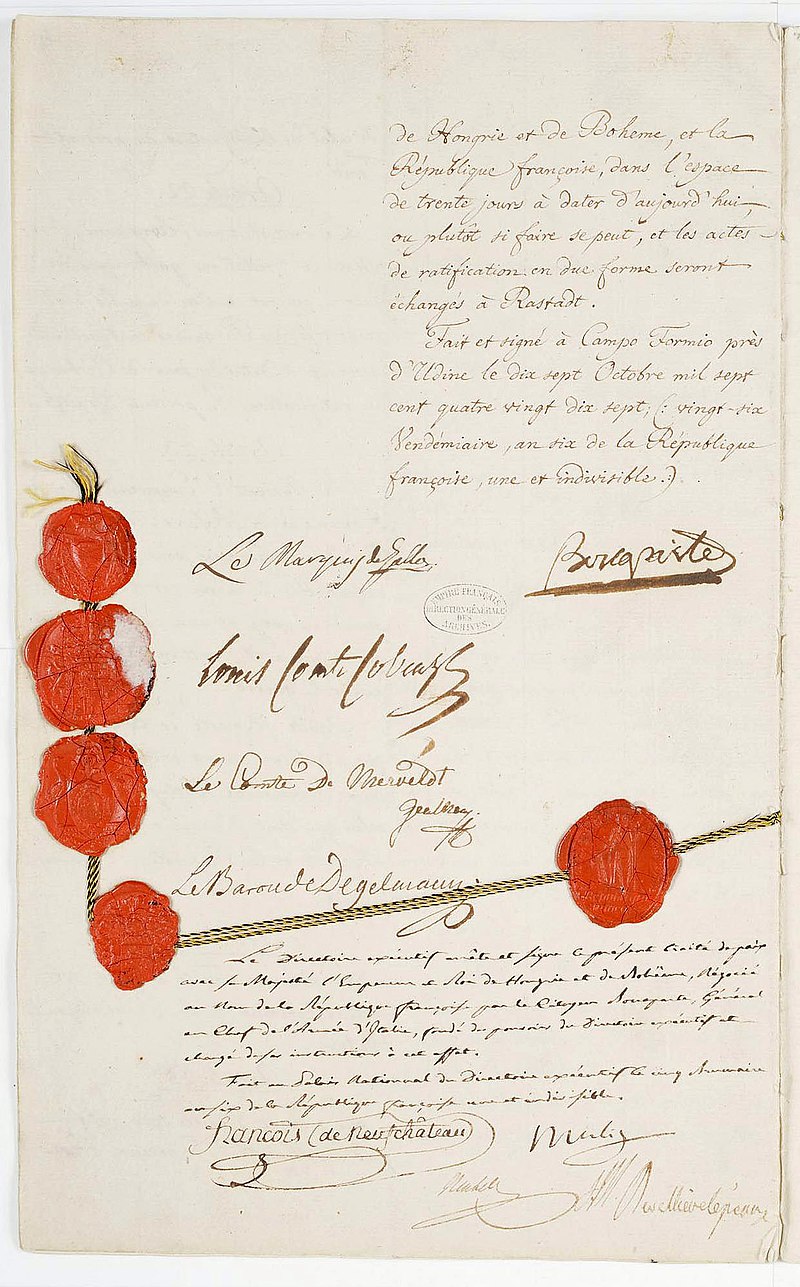 de Hongrie et de Boheme, et la
République françoise, dans l'espace
de trente jours à dater d'aujourd'hui,
ou plutôt si faire se peut, et les actes
de ratification en due forme seront
échangés à Rastadt.
Fait et signé à Campo Formio près
d'Udine le dix sept Octobre mil sept
cent quatre vingt dix sept; (: vingt-six
Vendémiaire, an six de la République
françoise, une et indivisible.:)
Le Marquis de Gallo.
Bonaparte
EMPIRE FRANÇAIS
DIRECTION GÉNÉRALE
DES
ARCHIVES.
Louis Comte Cobenzl
Le Comte De Merveldt
Le Baron de Degelmann.
Le Directoire exécutif arrête et signe le présent traité de paix
avec sa Majesté l'Empereur et Roi de Hongrie et de Bohëme, Négocié
au Nom de la République françoise par le Citoyen Bonaparte, Général
en Chef de l'Armée d'Italie, fondé de pouvoirs du Directoire exécutif et
chargé de ses instructions à cet effet.
Fait au Palais National du Directoire exécutif le cinq Brumaire
an six de la République françoise une et indivisible.
françois (de neufchâteau)
Merlin